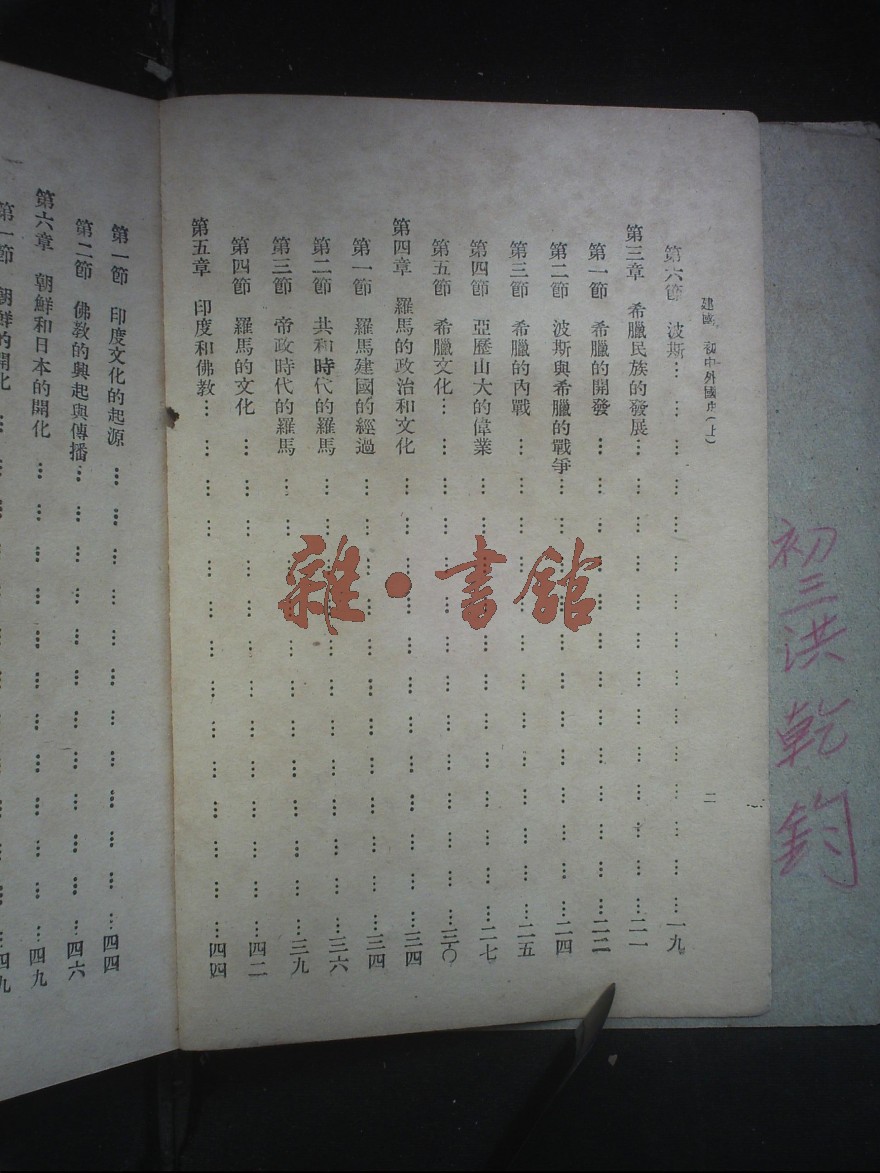 建國 初中外國史(上)
二
第六節 波斯…………………………一九
第三章 希臘民族的發展…………………………二一
第一節 希臘的開發…………………………二二
第二節 波斯與希臘的戰爭…………………………二四
第三節 希臘的內戰…………………………二五
第四節 亞歷山大的偉業…………………………二七
第五節 希臘文化…………………………三〇
第四章 羅馬的政治和文化…………………………三四
第一節 羅馬建國的經過…………………………三四
第二節 共和時代的羅馬…………………………三六
第三節 帝政時代的羅馬…………………………三九
第四節 羅馬的文化…………………………四二
第五章 印度和佛教…………………………四四
第一節 印度文化的起源…………………………四四
第二節 佛教的興起與傳播…………………………四六
第六章 朝鮮和日本的開化…………………………四九
第一節 朝鮮的開化…………………………四九
初三洪乾鈞
雜·書館